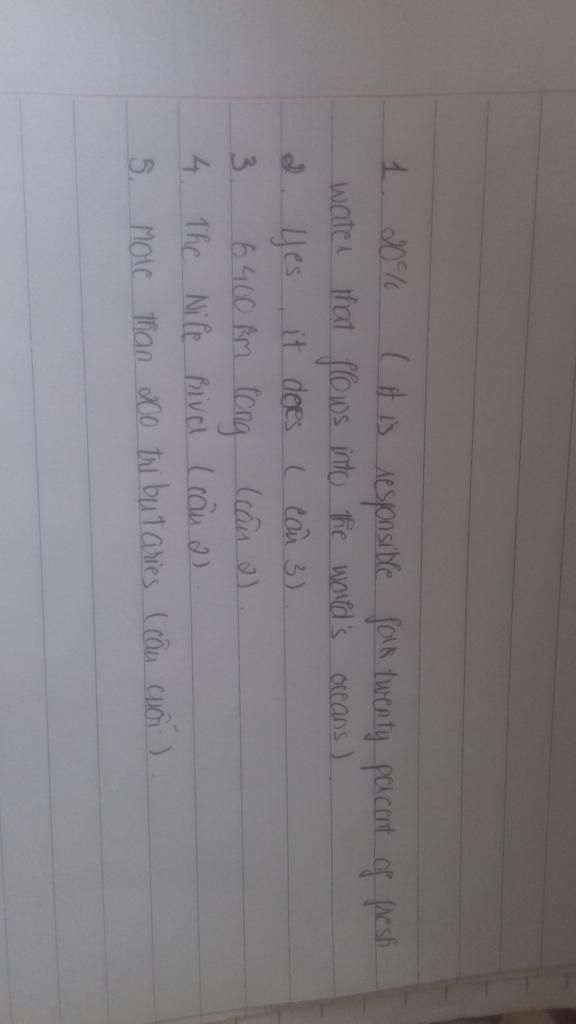 1. 20% ( It is responsible for twenty percent of fresh
water that flows into the world's oceans)
2. Yes, it does ( câu 3)
3. 6400 km long (câu 2).
4. The Nile River (câu 2).
5. More than 200 tributaries (câu cuối).